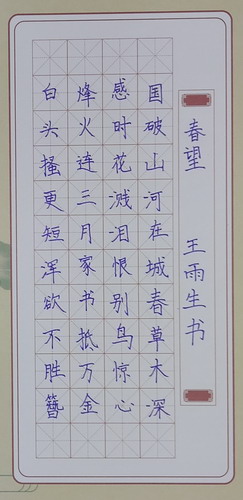 春望
王雨生书
国破山河在城春草木深
感时花溅泪恨别鸟惊心
烽火连三月家书抵万金
白头搔更短浑欲不胜簪